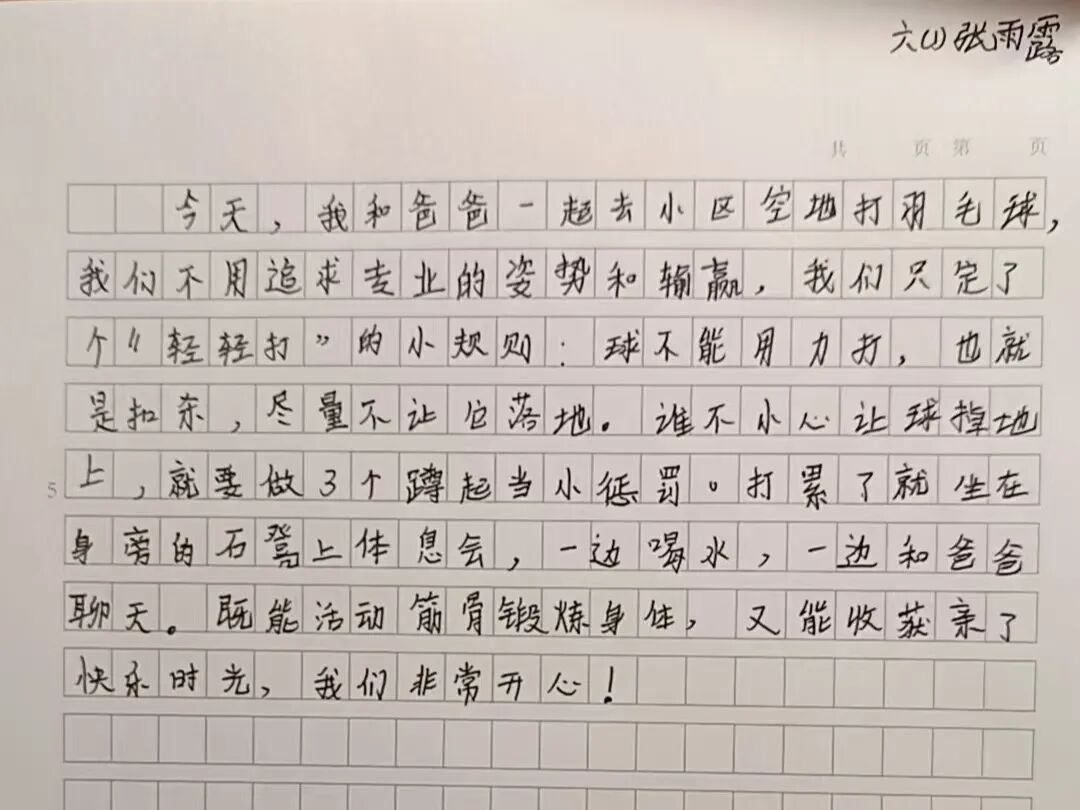 六(1)张雨露
共 页 第 页
今天，我和爸爸一起去小区空地打羽毛球，
我们不用追求专业的姿势和输赢，我们只定了
个“轻轻打”的小规则：球不能用力打，也就
是扣杀，尽量不让它落地。谁不小心让球掉地
5 上，就要做3个蹲起当小惩罚。打累了就坐在
身旁的石凳上体息会，一边喝水，一边和爸爸
聊天。既能活动筋骨锻炼身体，又能收获亲了
快乐时光，我们非常开心！